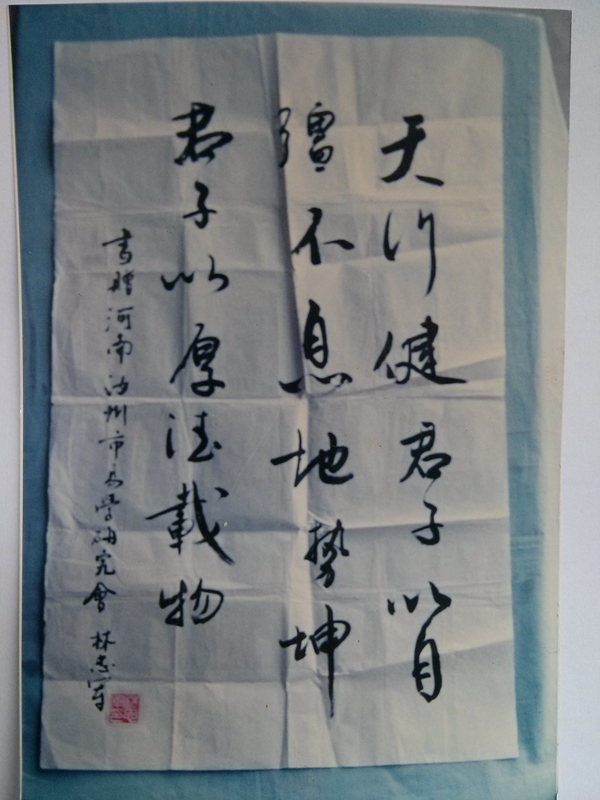 天行健君子以自
彊不息地势坤
君子以厚德載物
书赠河南汝州市易学研究會 林忠军